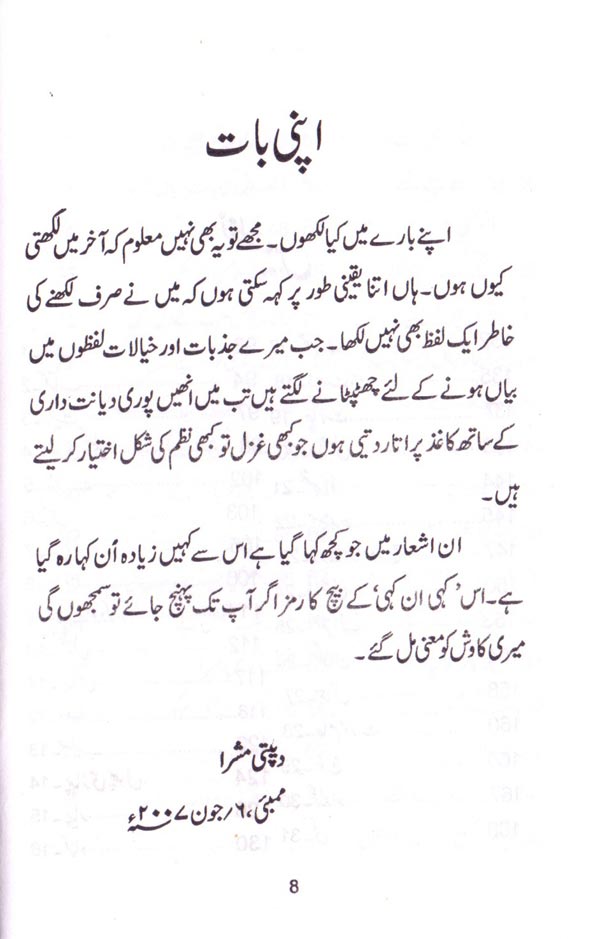 اپنی بات
اپنے بارے میں کیا لکھوں۔ مجھے تو یہ بھی نہیں معلوم کہ آخر میں لکھتی
کیوں ہوں۔ ہاں اتنا یقینی طور پر کہہ سکتی ہوں کہ میں نے صرف لکھنے کی
خاطر ایک لفظ بھی نہیں لکھا۔ جب میرے جذبات اور خیالات لفظوں میں
بیاں ہونے کے لئے چھٹپٹانے لگتے ہیں تب میں انھیں پوری دیانت داری
کے ساتھ کاغذ پر اتار دیتی ہوں جو کبھی غزل تو کبھی نظم کی شکل اختیار کر لیتے
ہیں۔
ان اشعار میں جو کچھ کہا گیا ہے اس سے کہیں زیادہ اُن کہا رہ گیا
ہے۔ اس ’کہی ان کہی‘ کے بیچ کا رمز اگر آپ تک پہنچ جائے تو سمجھوں گی
میری کاوش کو معنی مل گئے۔
دپیتی مشرا
ممبئی، ۶؍ جون ۲۰۰۷ء
8